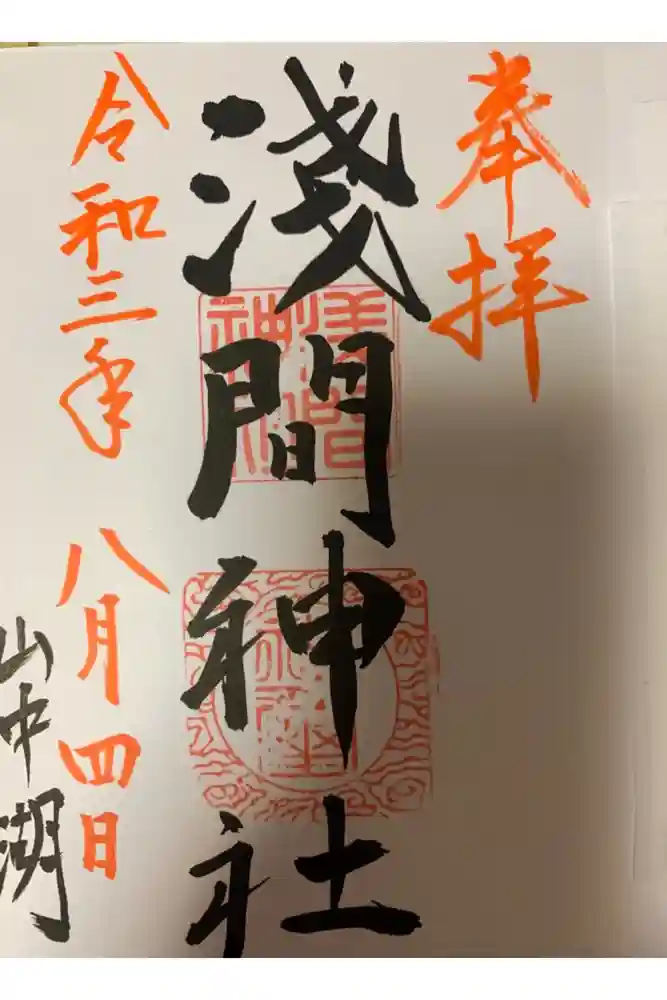 奉拝
淺間神社
令和三年八月四日
山中湖